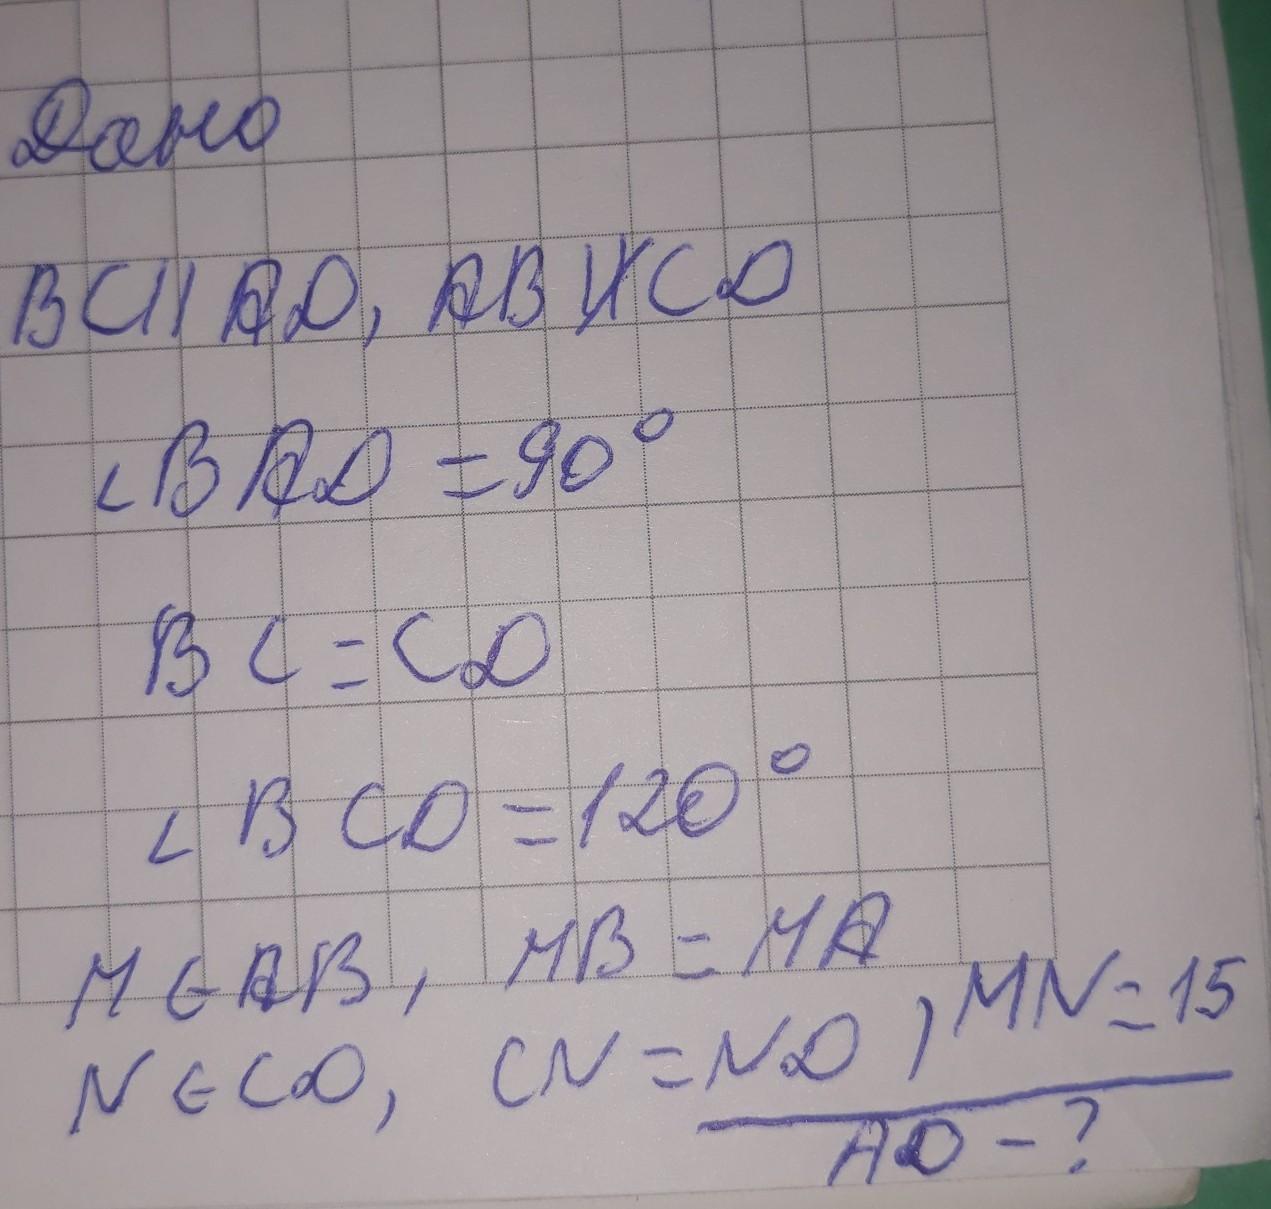 Дано
BC || AD, AB ∦ CD
∠BAD = 90°
BC = CD
∠BCD = 120°
M ∈ AB, MB = MA
N ∈ CD, CN = ND, MN = 15
AD - ?